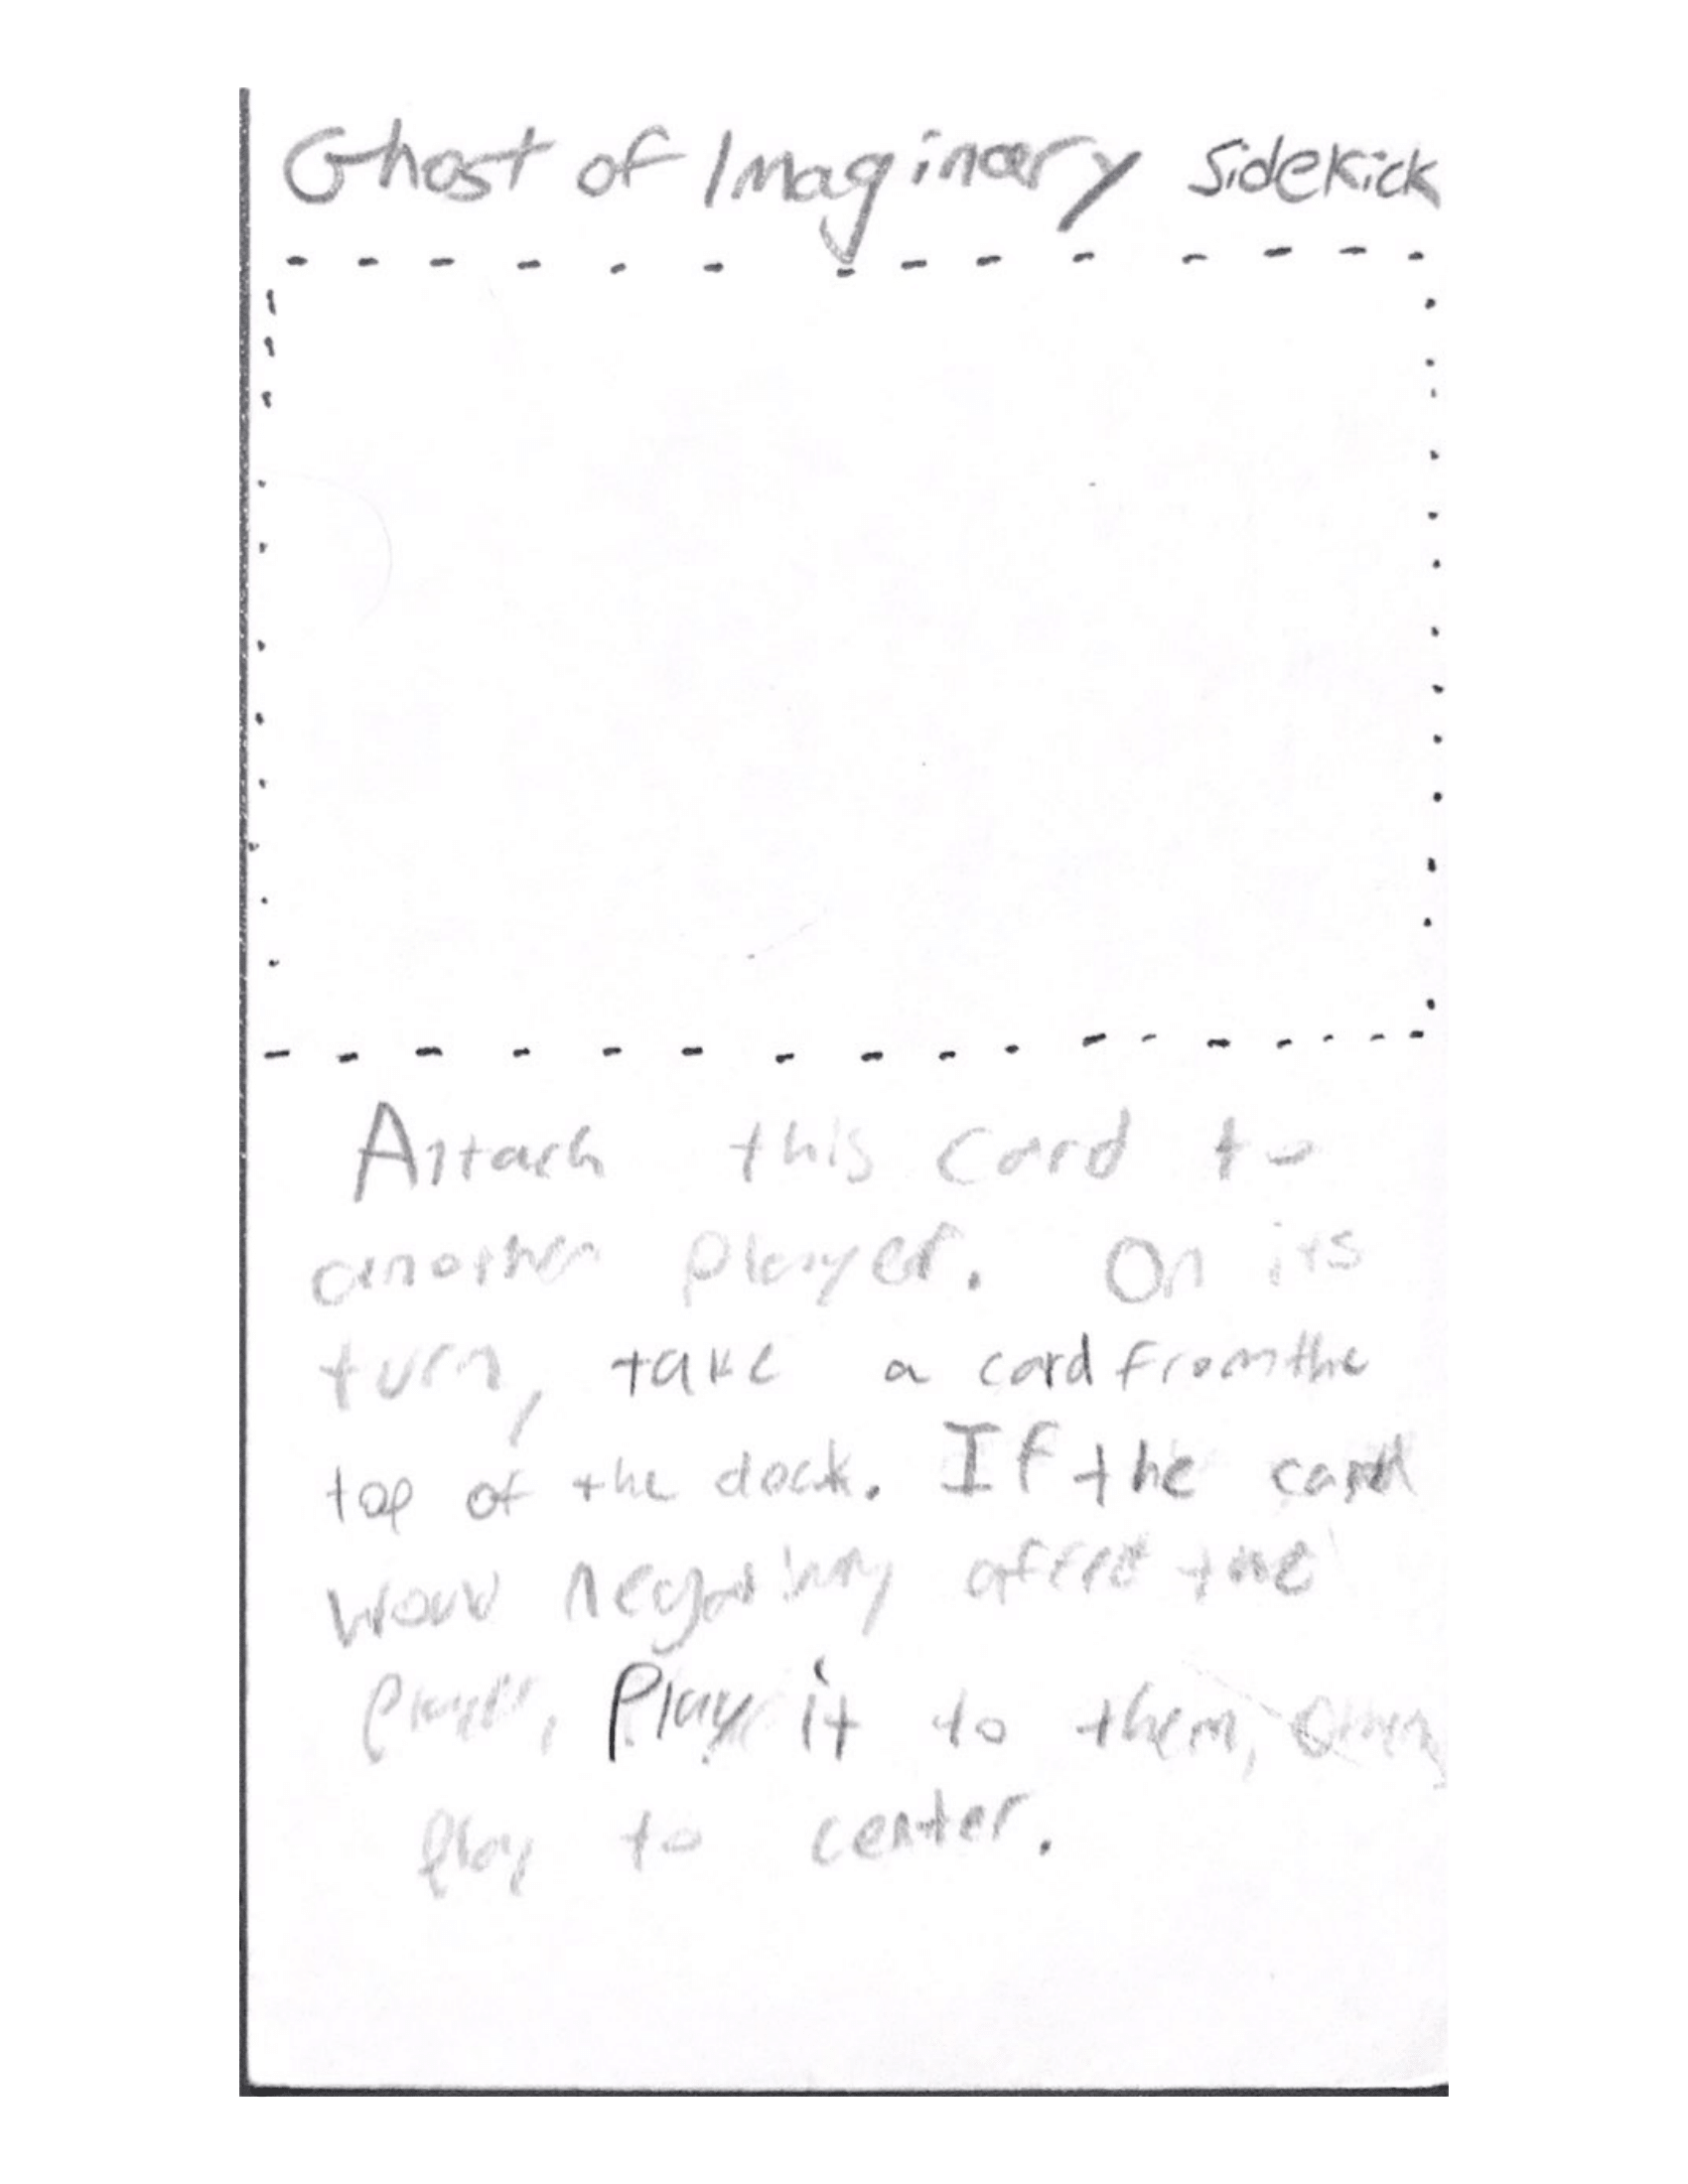 Ghost of Imaginary Sidekick
Attach this card to
another player. On its
turn, take a card from the
top of the deck. If the card
would negatively affect the
player, Play it to them,
play to center.